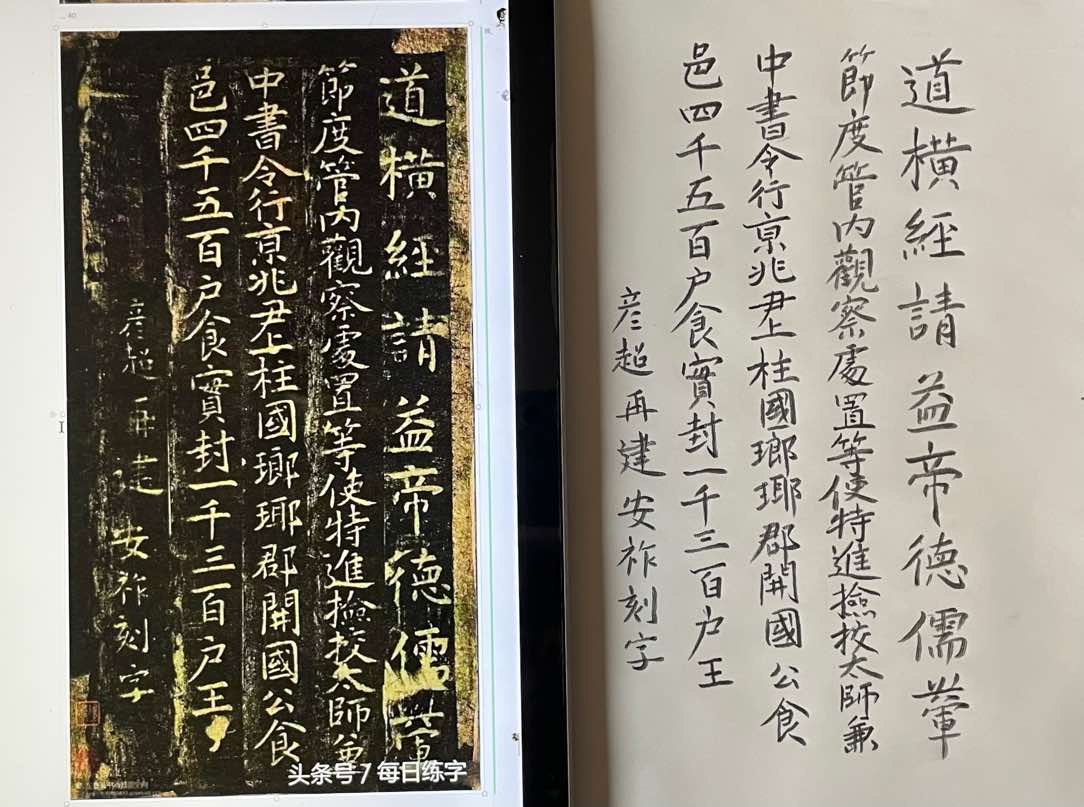 道橫經請益帝德儒葷
節度管内觀察處置等使特進撿挍太師兼
中書令行京兆尹上柱國瑯琊郡開國公食
邑四千五百户食實封一千三百户王
彦超再建安祚刻字
头条号 / 每日练字
道橫經請益帝德儒葷
節度管内觀察處置等使特進撿挍太師兼
中書令行京兆尹上柱國瑯琊郡開國公食
邑四千五百户食實封一千三百户王
彦超再建安祚刻字